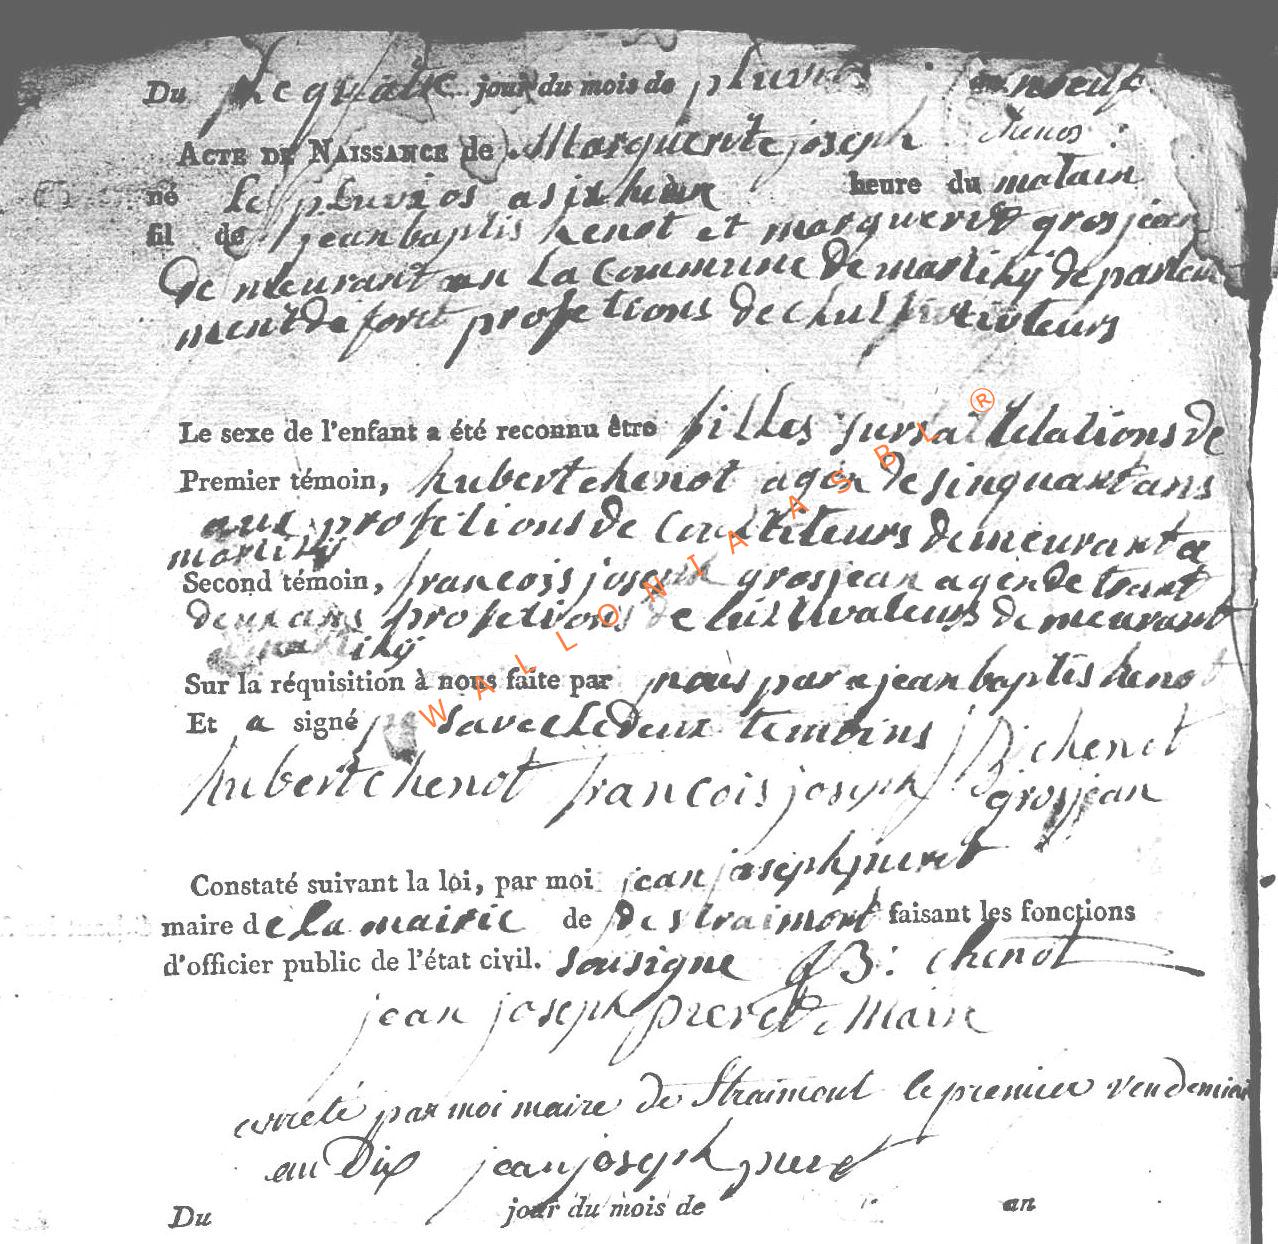 Du le quatre jour du mois de pluvios an neuf
ACTE DE NAISSANCE de Marguerite joseph chenos
né le pluvios a six heur heure du matain
fil de jean baptis henot et marguerit grosjean
de meurant an la commune de martihÿ departem
ment de foret profetions de chultivateurs
Le sexe de l'enfant a été reconnu être filles sur la delations de
Premier témoin, hubert chenot agée de sinquant ans
profetions de coultiteurs demeurant a
martihÿ
Second témoin, francois joseph grosjean agée de trant
deux ans profetions de cultivateurs demeurant
a martihÿ
Sur la réquisition à nous faite par nous par a jean baptis henot
Et a signé avec le deux temoins J B chenot
hubert chenot francois joseph grosjean
Constaté suivant la loi, par moi jean joseph pierret
maire de la mairie de de straimont faisant les fonctions
d'officier public de l'état civil. sousigne J B: chenot
jean joseph pierret Maire
arreté par moi maire de Straimont le premier vendemiair
an Dix jean joseph pierret
Du jour du mois de an
WALLONIA ASBL ®